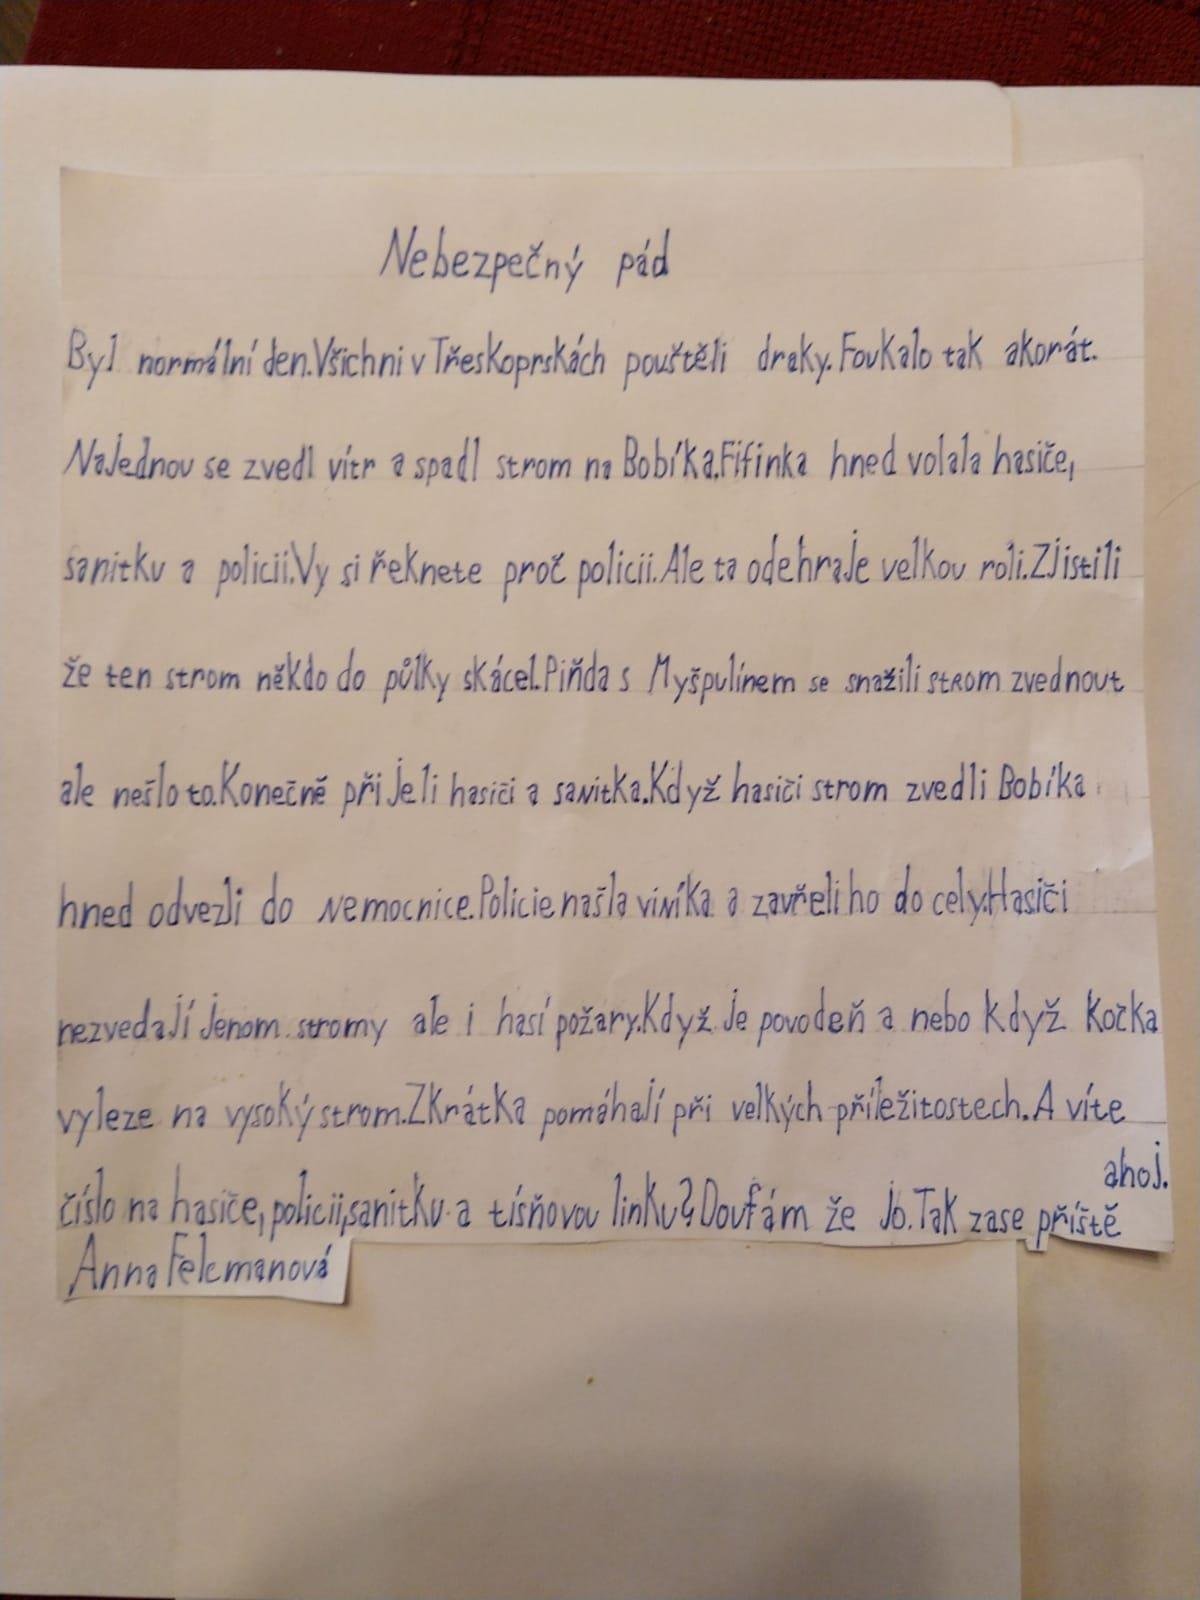 Nebezpečný pád
Byl normální den. Všichni v Třeskoprskách pouštěli draky. Foukalo tak akorát.
Najednou se zvedl vítr a spadl strom na Bobíka. Fifinka hned volala hasiče,
sanitku a policii. Vy si řeknete proč policii. Ale ta odehraje velkou roli. Zjistili
že ten strom někdo do půlky skácel. Piňda s Myšpulínem se snažili strom zvednout
ale nešlo to. Konečně přijeli hasiči a sanitka. Když hasiči strom zvedli Bobíka
hned odvezli do nemocnice. Policie našla viníka a zavřeli ho do cely. Hasiči
nezvedají jenom stromy ale i hasí požáry. Když je povodeň a nebo když kočka
vyleze na vysoký strom. Zkrátka pomáhají při velkých příležitostech. A víte
číslo na hasiče, policii, sanitku a tísňovou linku? Doufám že jo. Tak zase příště
ahoj.
Anna Felcmanová